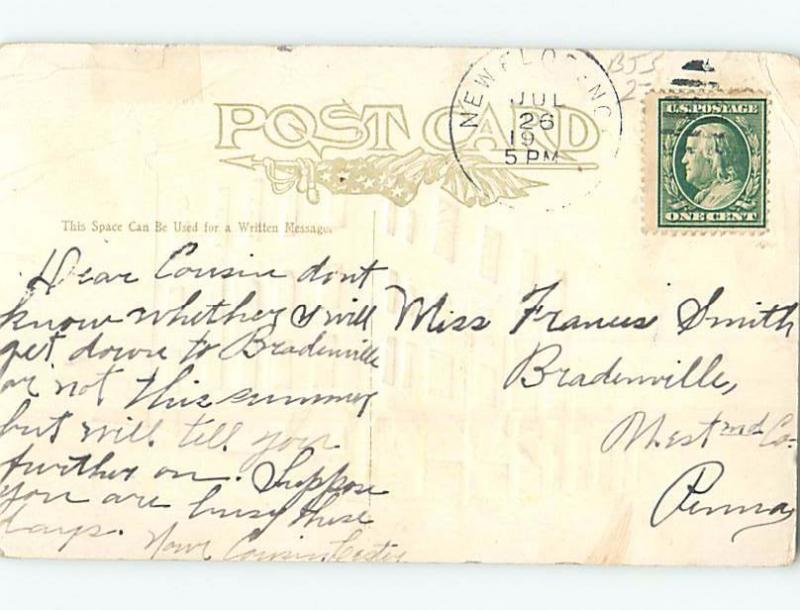 POST CARD
NEW FLORENC
JUL
26
19
5 PM
B55
U.S. POSTAGE
ONE CENT
This Space Can Be Used for a Written Message.
Dear Cousin dont
know whether I will
get down to Bradenville
or not this summer
but will tell you
further on. Suppose
you are busy these
days. Your Cousin
Miss Frances Smith
Bradenville,
West md Co.
Penna